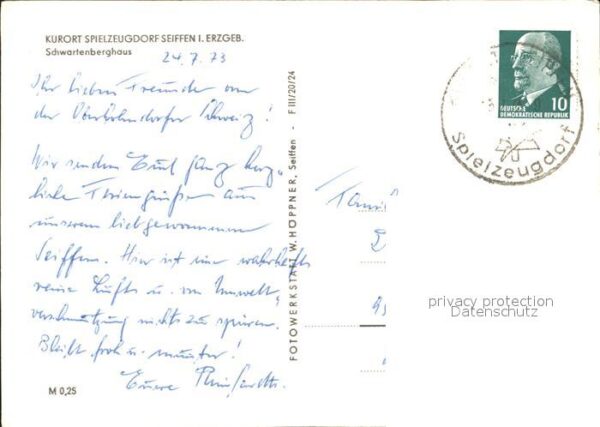 KURORT SPIELZEUGDORF SEIFFEN I. ERZGEB.
Schwartenberghaus
24.7.73
Ihr lieben Freunde von
der Oberhohndorfer Schweiz!
Wir senden Euch ganz herz-
liche Feriengrüße aus
unserem liebgewonnenen
Seiffen. Hier ist eine wahrhaft
reine Luft u. von Umwelt-
verschmutzung nichts zu spüren.
Bleibt froh u. munter!
Eure
M 0,25
FOTOWERKSTATT W. HOPPNER, Seiffen - F III/20/24
Fami
DEUTSCHE
DEMOKRATISCHE REPUBLIK
10
Spielzeugdorf
privacy protection
Datenschutz